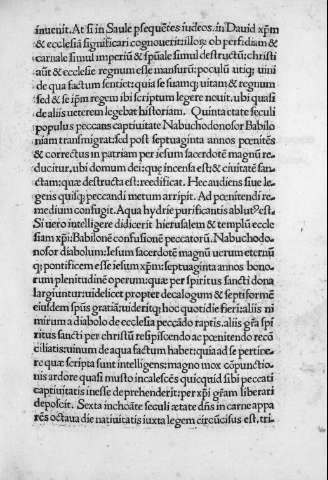 inuenit. At si in Saule psequētes iudeos, in Dauid xp̄m
& ecclesiā significari cognouerit: illos ob perfidiam &
carnale simul imperiū & spūale simul destructū: christi
aūt & ecclesie regnum esse mansurū: poculū utiq; uini
de qua factum sentiet: quia se suamq; uitam & regnum
sed & se ip̄m regem ibi scriptum legere nouit, ubi quasi
de aliis ueterem legebat historiam. Quinta etate seculi
populus peccans captiuitate Nabuchodonosor Babilo
niam transmigrat: sed post septuaginta annos pœnitēs
& correctus in patriam per iesum sacerdotē magnū re/
ducitur, ubi domum dei: quę incensa est: & ciuitatē san/
ctam: quæ destructa est: reedificat. Hec audiens siue le/
gens quisq; peccandi metum arripit. Ad pœnitendi re
medium confugit. Aqua hydrie purificantis ablut⁹ est.
Si uero intelligere didicerit hierusalem & templū eccle
siam xp̄i: Babilonē confusionē peccatorū. Nabuchodo/
nosor diabolum: Iesum sacerdotē magnū uerum eternū
q; pontificem esse iesum xp̄m: septuaginta annos bono/
rum plenitudinē operum: quæ per spiritus sancti dona
largiuntur: uidelicet propter decalogum & septiformē
eiusdem sp̄us gratiā: uideritq; hoc quotidie fieri: aliis ni
mirum a diabolo de ecclesia peccādo raptis. aliis gr̄a spi
ritus sancti per christū resipiscendo ac pœnitendo recō
ciliatis: uinum de aqua factum habet: quia ad se pertine/
re quæ scripta sunt intelligens: magno mox cōpunctio/
nis ardore quasi musto incalescēs quicquid sibi peccati
captiuitatis inesse deprehenderit: per xp̄i grām liberari
deposcit. Sexta inchoāte seculi ætate dn̄s in carne appa
rēs octaua die natiuitatis iuxta legem circūcisus est, tri/